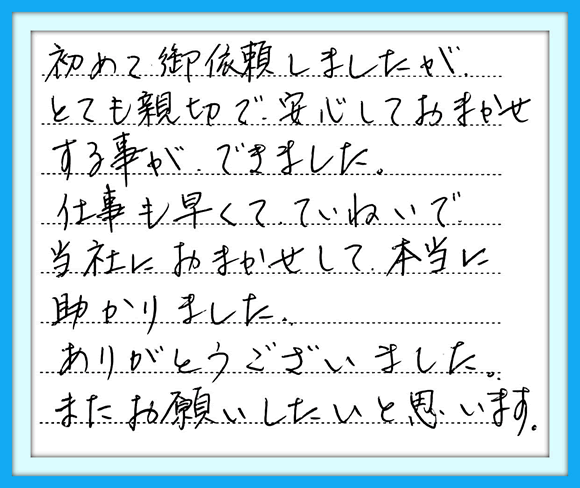 初めて御依頼しましたが、
とても親切で、安心しておまかせ
する事が、できました。
仕事も早くて、ていねいで
当社におまかせして、本当に
助かりました。
ありがとうございました。
またお願いしたいと思います。